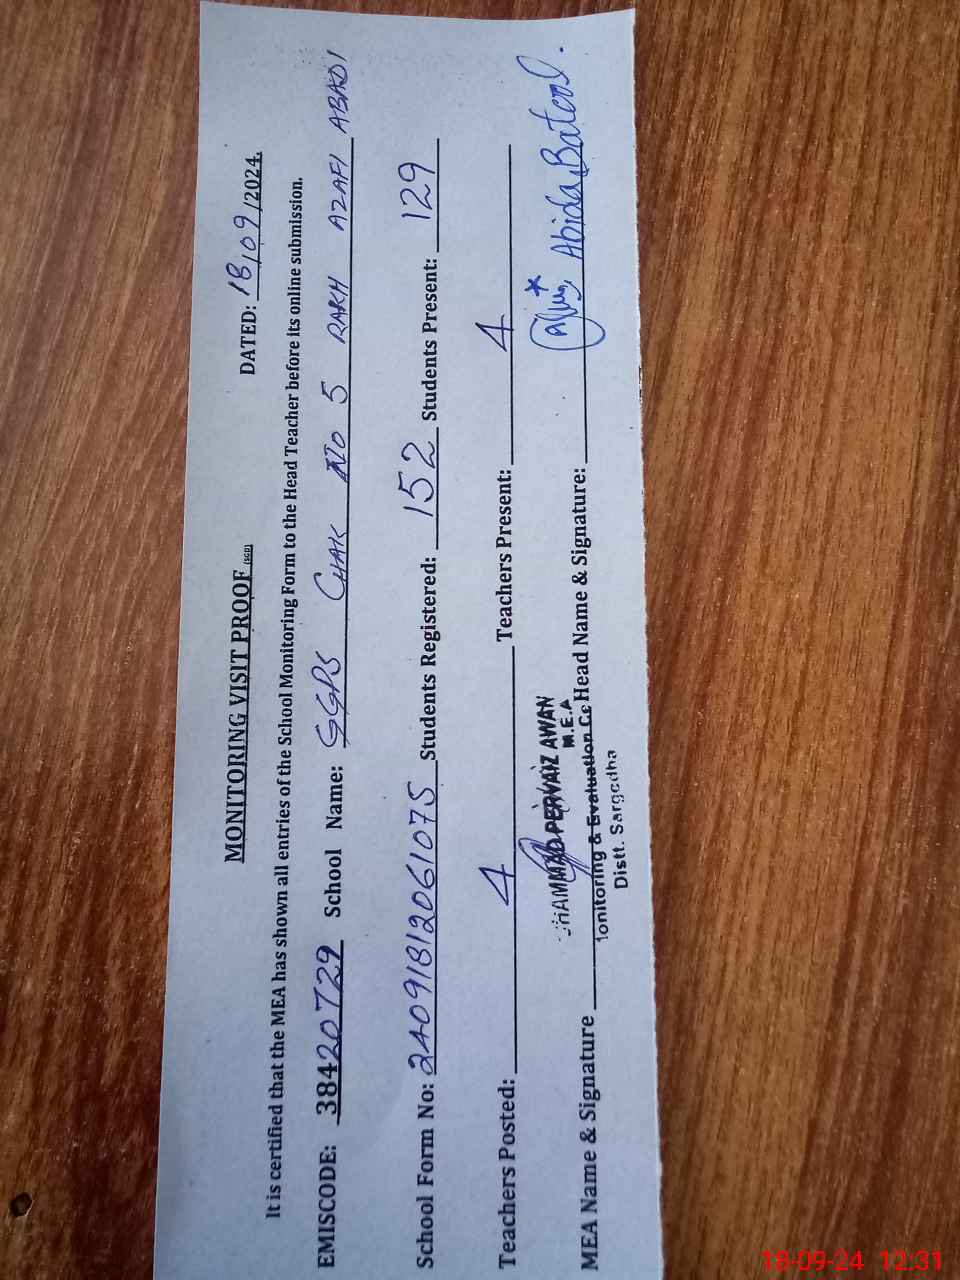 MONITORING VISIT PROOF (SGD)
DATED: 18/09/2024.
It is certified that the MEA has shown all entries of the School Monitoring Form to the Head Teacher before its online submission.
EMISCODE: 38420729 School Name: GGPS CHAK NO 5 RAKH AZAFI ABADI
School Form No: 24091812061075 Students Registered: 152 Students Present: 129
Teachers Posted: 4 Teachers Present: 4
MEA Name & Signature Head Name & Signature: Abida Batool.
HAMMAD PERVAIZ AWAN
M.E.A
onitoring & Evaluation Ce
Distt. Sargodha
18-09-24 12:31